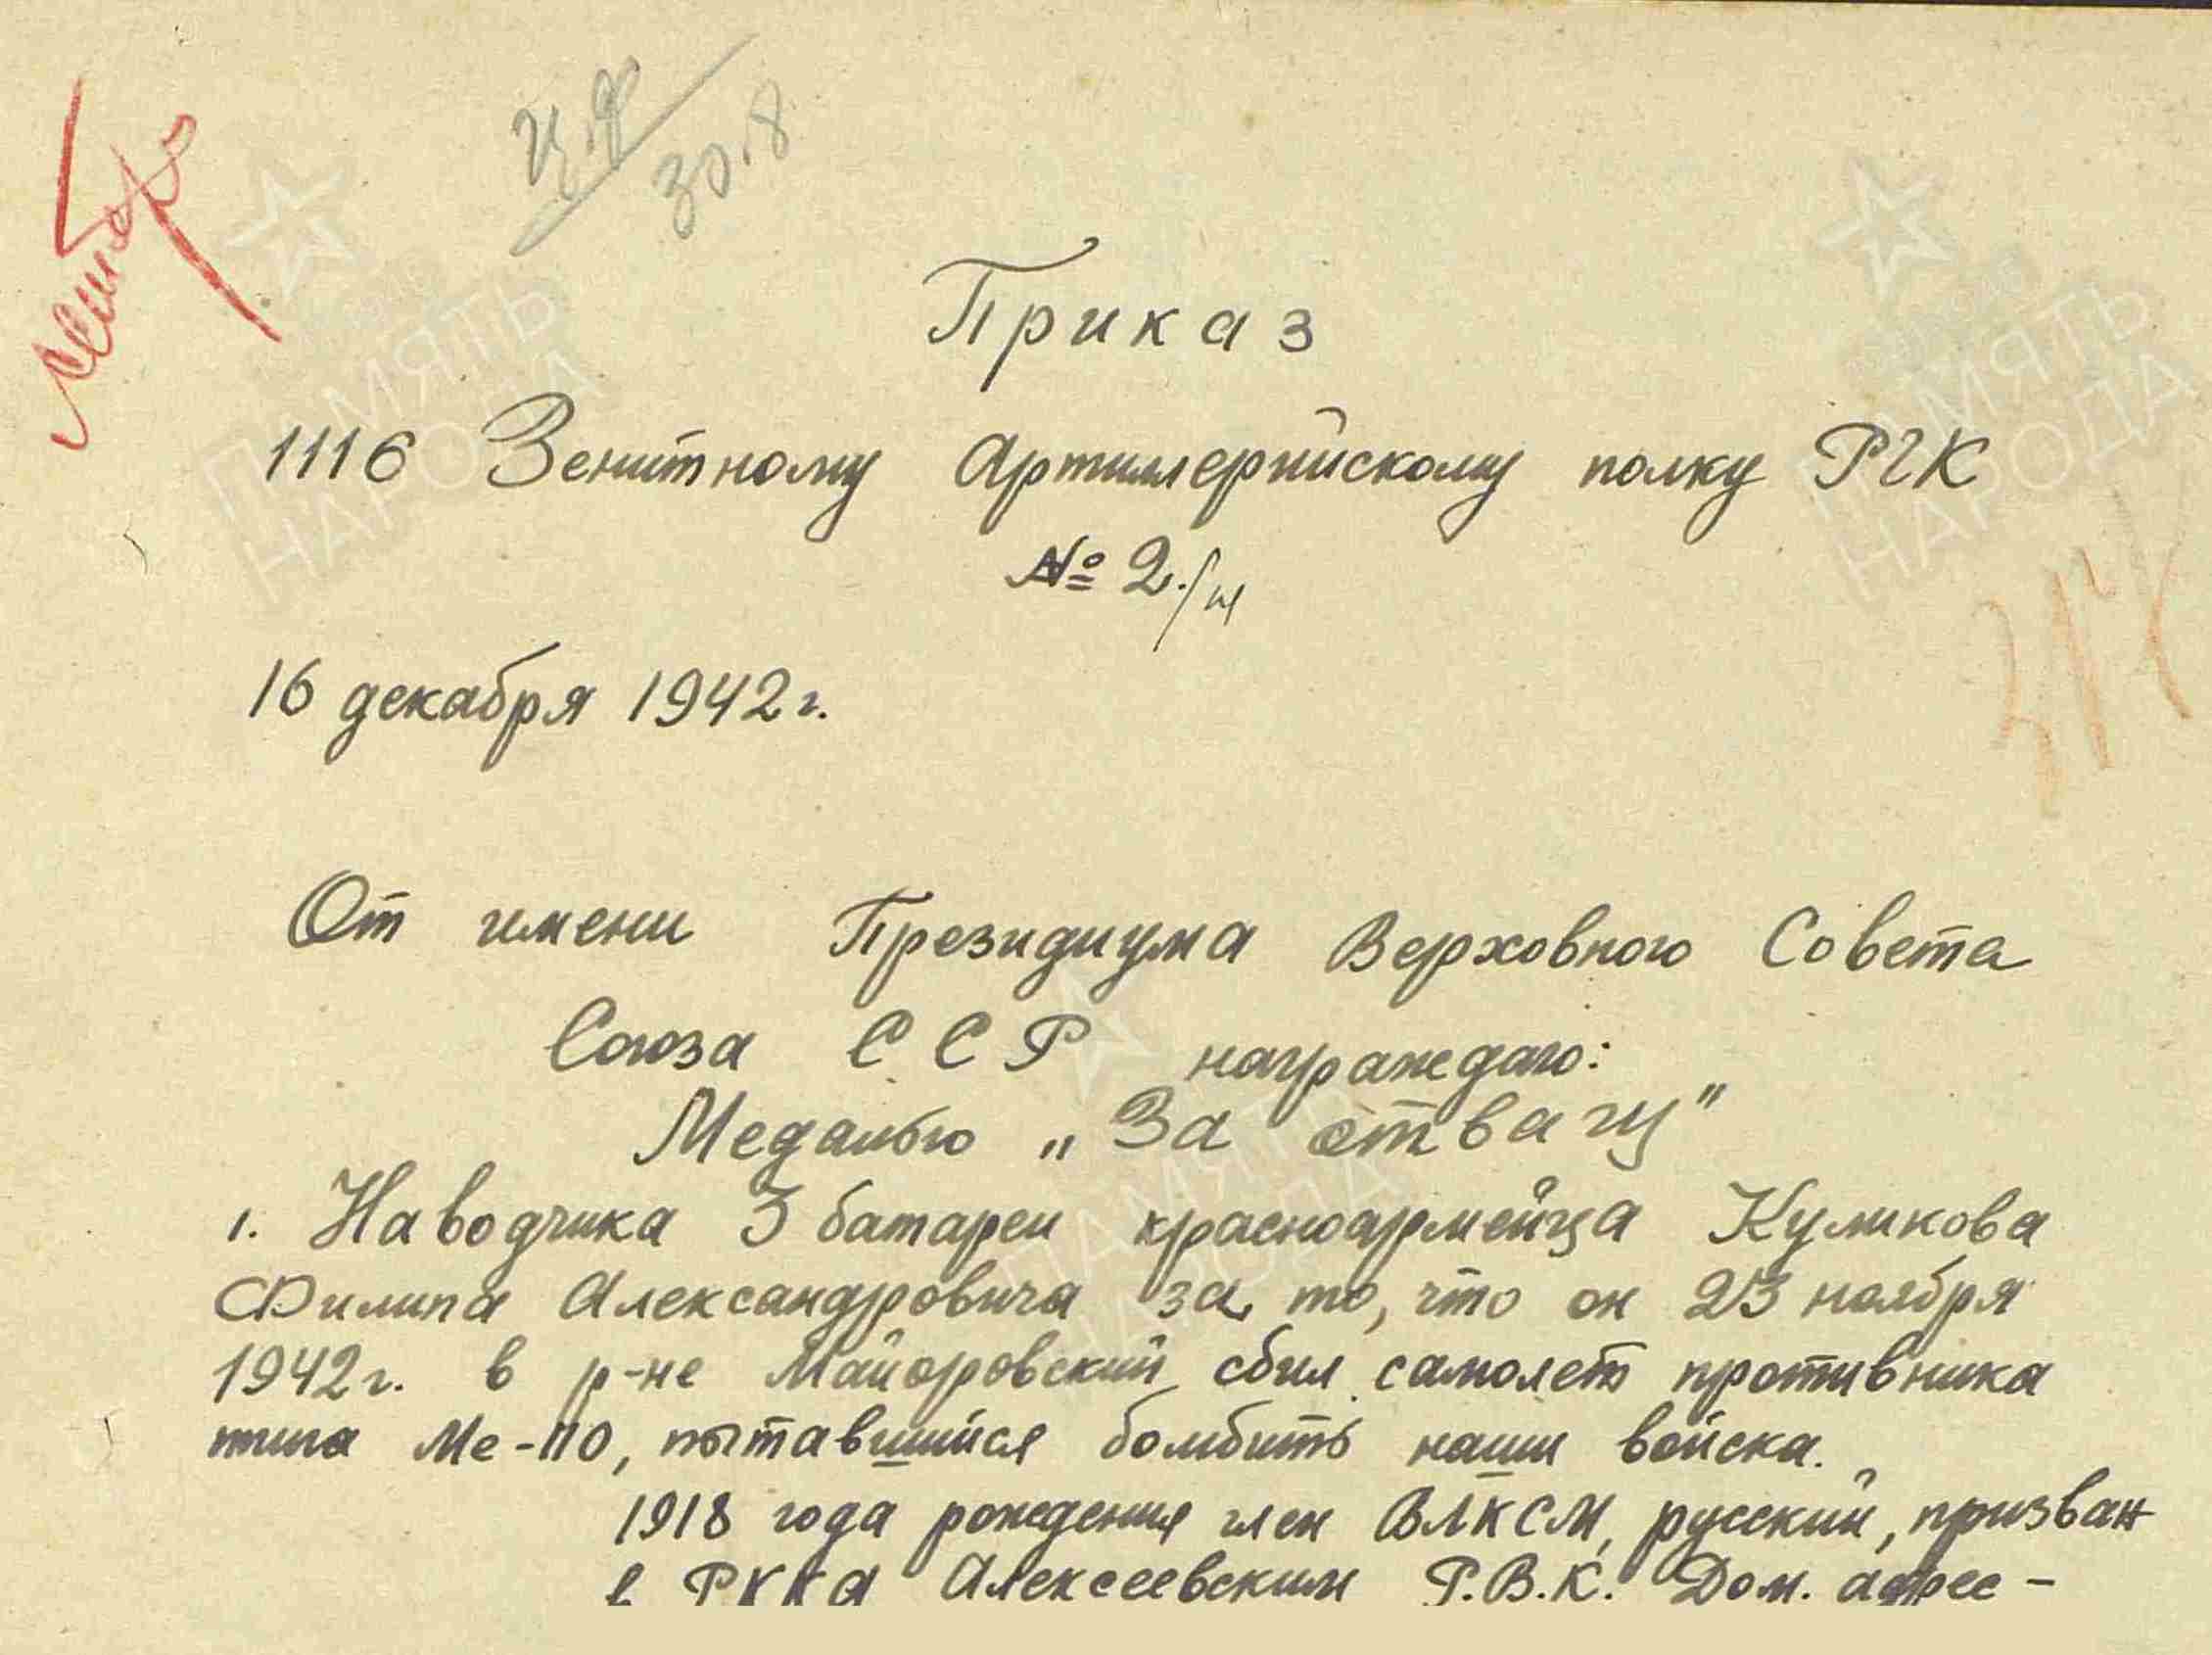 30.8
Приказ
1116 Зенитному Артиллерийскому полку РГК
№ 2/н
16 декабря 1942г.
От имени Президиума Верховного Совета
Союза ССР награждаю:
Медалью „За отвагу"
1. Наводчика 3 батареи красноармейца Куликова
Филипа Александровича за то, что он 23 ноября
1942г. в р-не Майоровский сбил самолет противника
типа Ме-110, пытавшийся бомбить наши войска.
1918 года рождения член ВЛКСМ, русский, призван
в РККА Алексеевским Р.В.К. Дом. адрес -
ПАМЯТЬ
НАРОДА
ПАМЯТЬ
НАРОДА
ПАМЯТЬ
НАРОДА